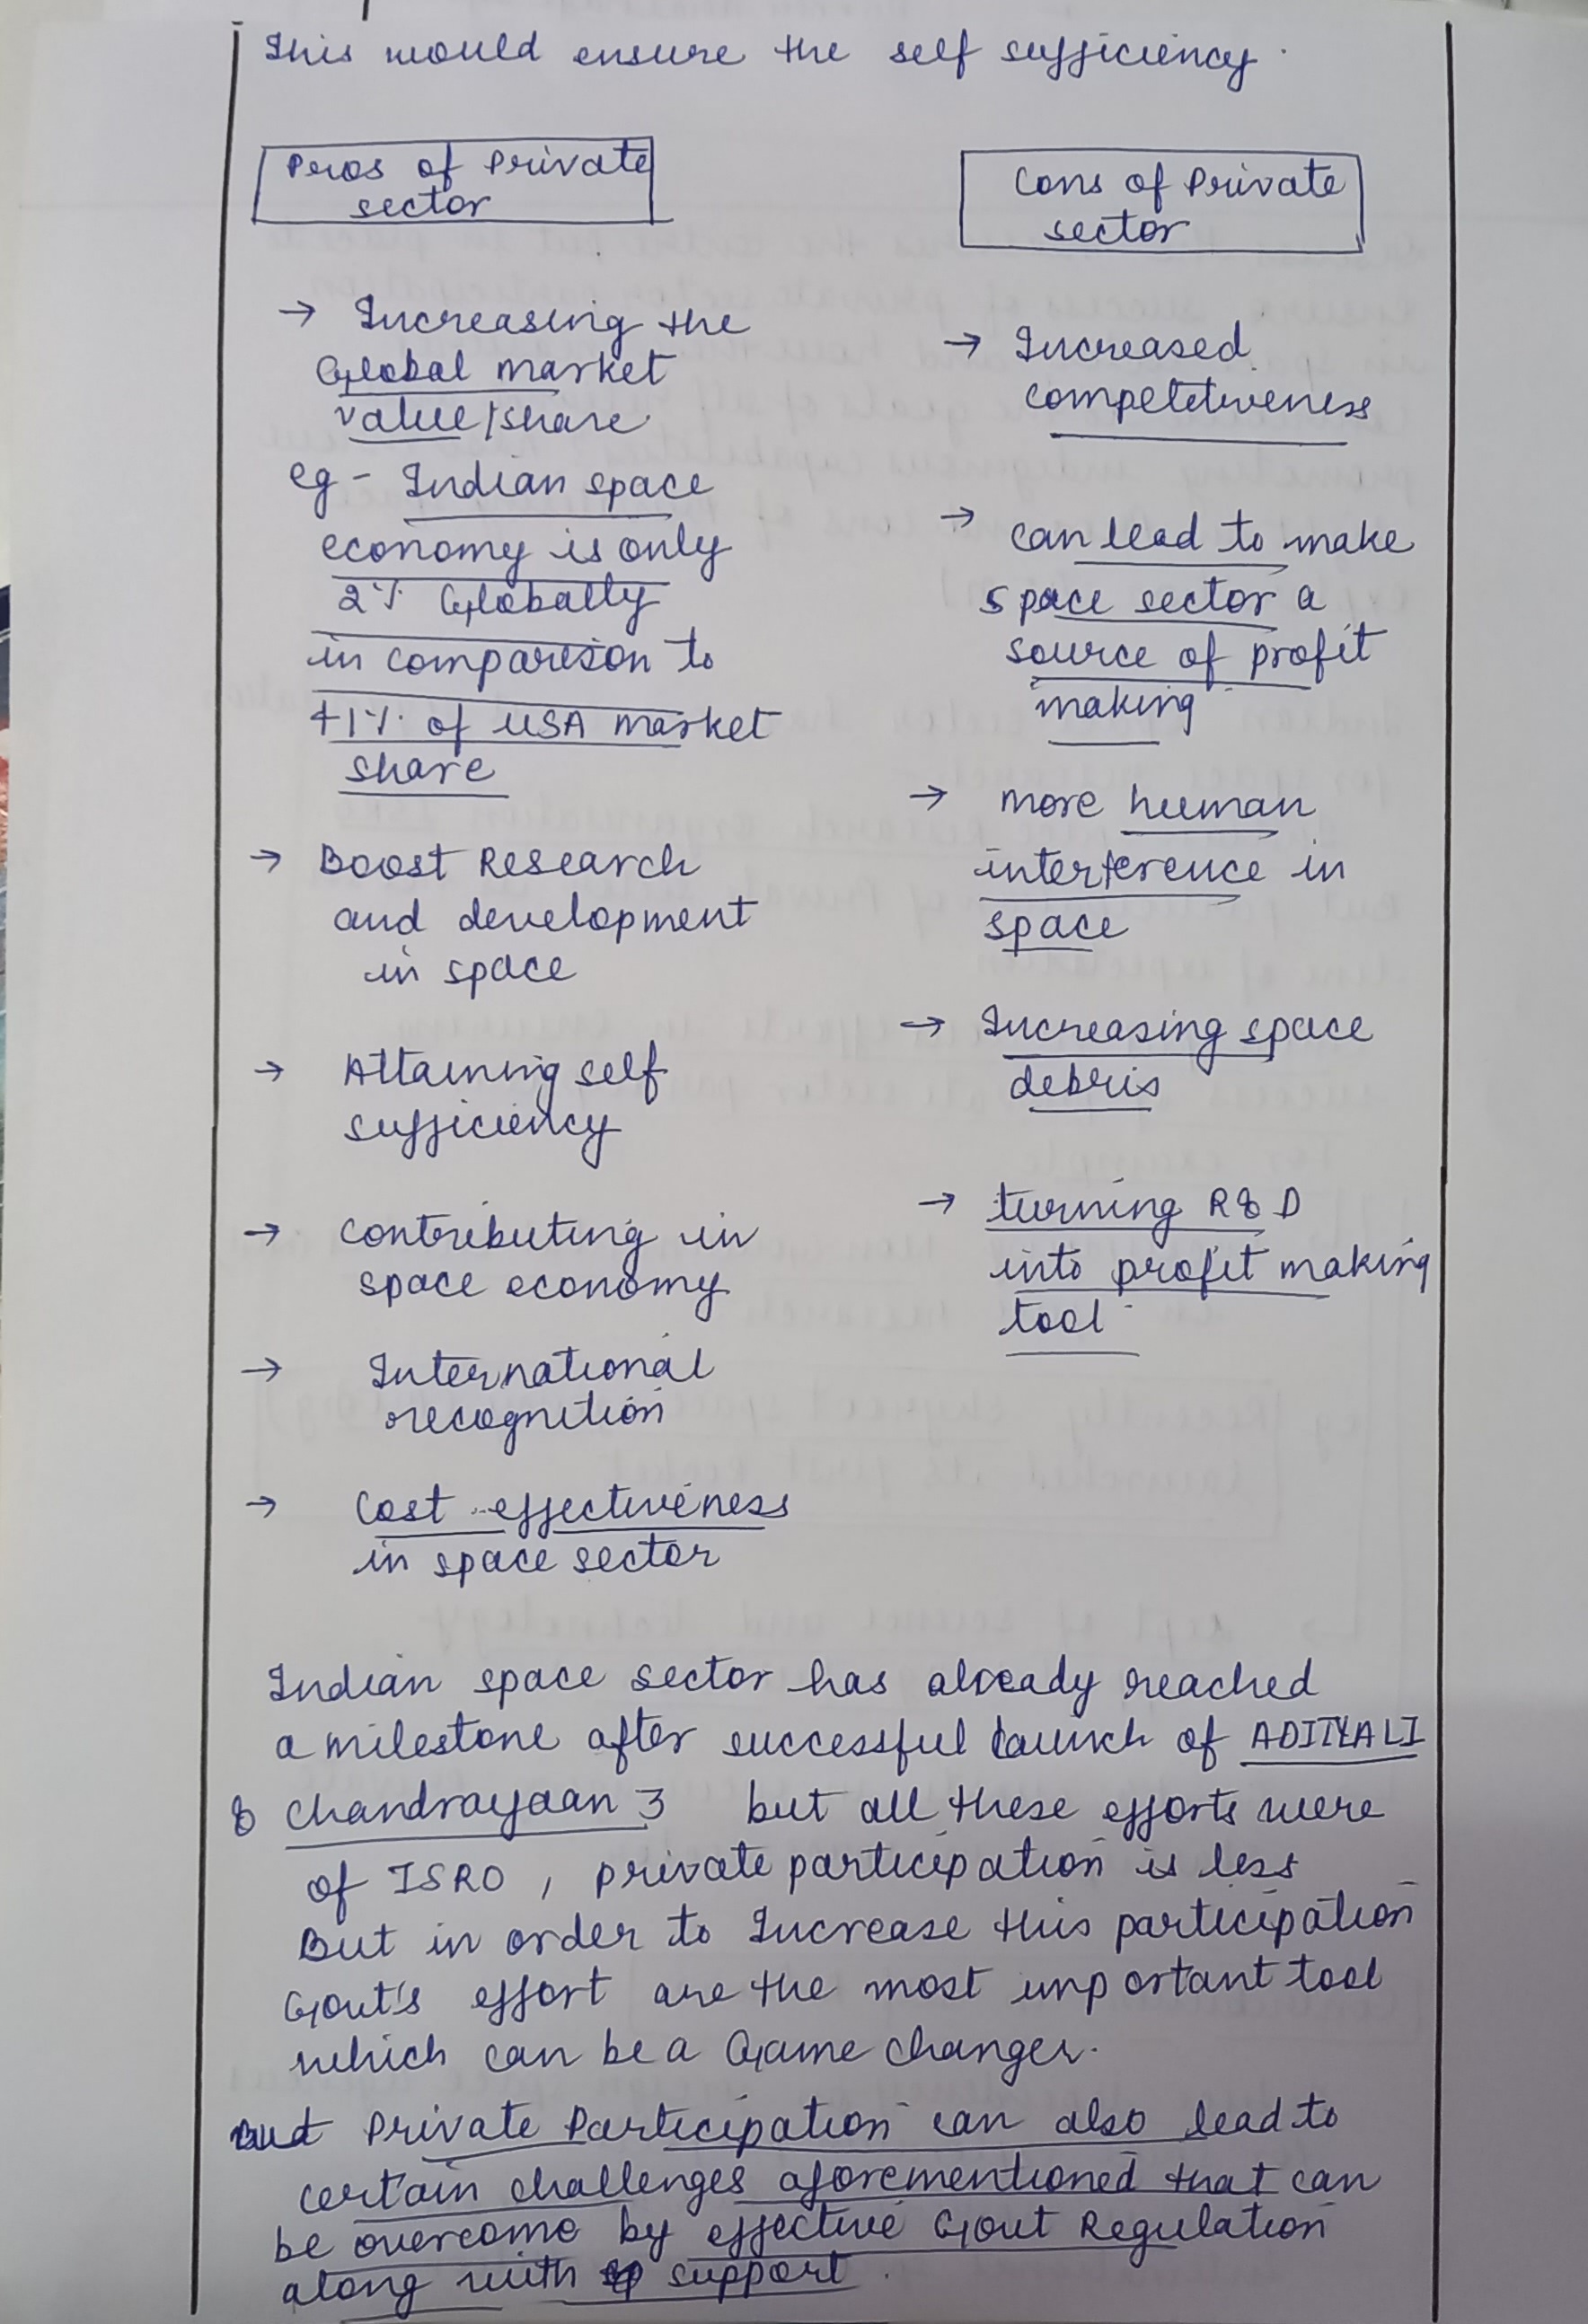 This would ensure the self sufficiency.
Pros of Private
sector
→ Increasing the
Global market
value/share
eg - Indian space
economy is only
2% Globally
in comparison to
41% of USA market
share
→ Boost Research
and development
in space
→ Attaining self
sufficiency
→ Contributing in
space economy
→ International
recognition
→ Cost effectiveness
in space sector
Cons of Private
sector
→ Increased
competetiveness
→ can lead to make
space sector a
source of profit
making
→ more human
interference in
space
→ Increasing space
debris
→ turning R & D
into profit making
tool
Indian space sector has already reached
a milestone after successful launch of ADITYA L1
& Chandrayaan 3 but all these efforts were
of ISRO, private participation is less
But in order to Increase this participation
Govt's effort are the most important tool
which can be a Game changer.
But Private Participation can also lead to
certain challenges aforementioned that can
be overcome by effective Govt Regulation
along with support.